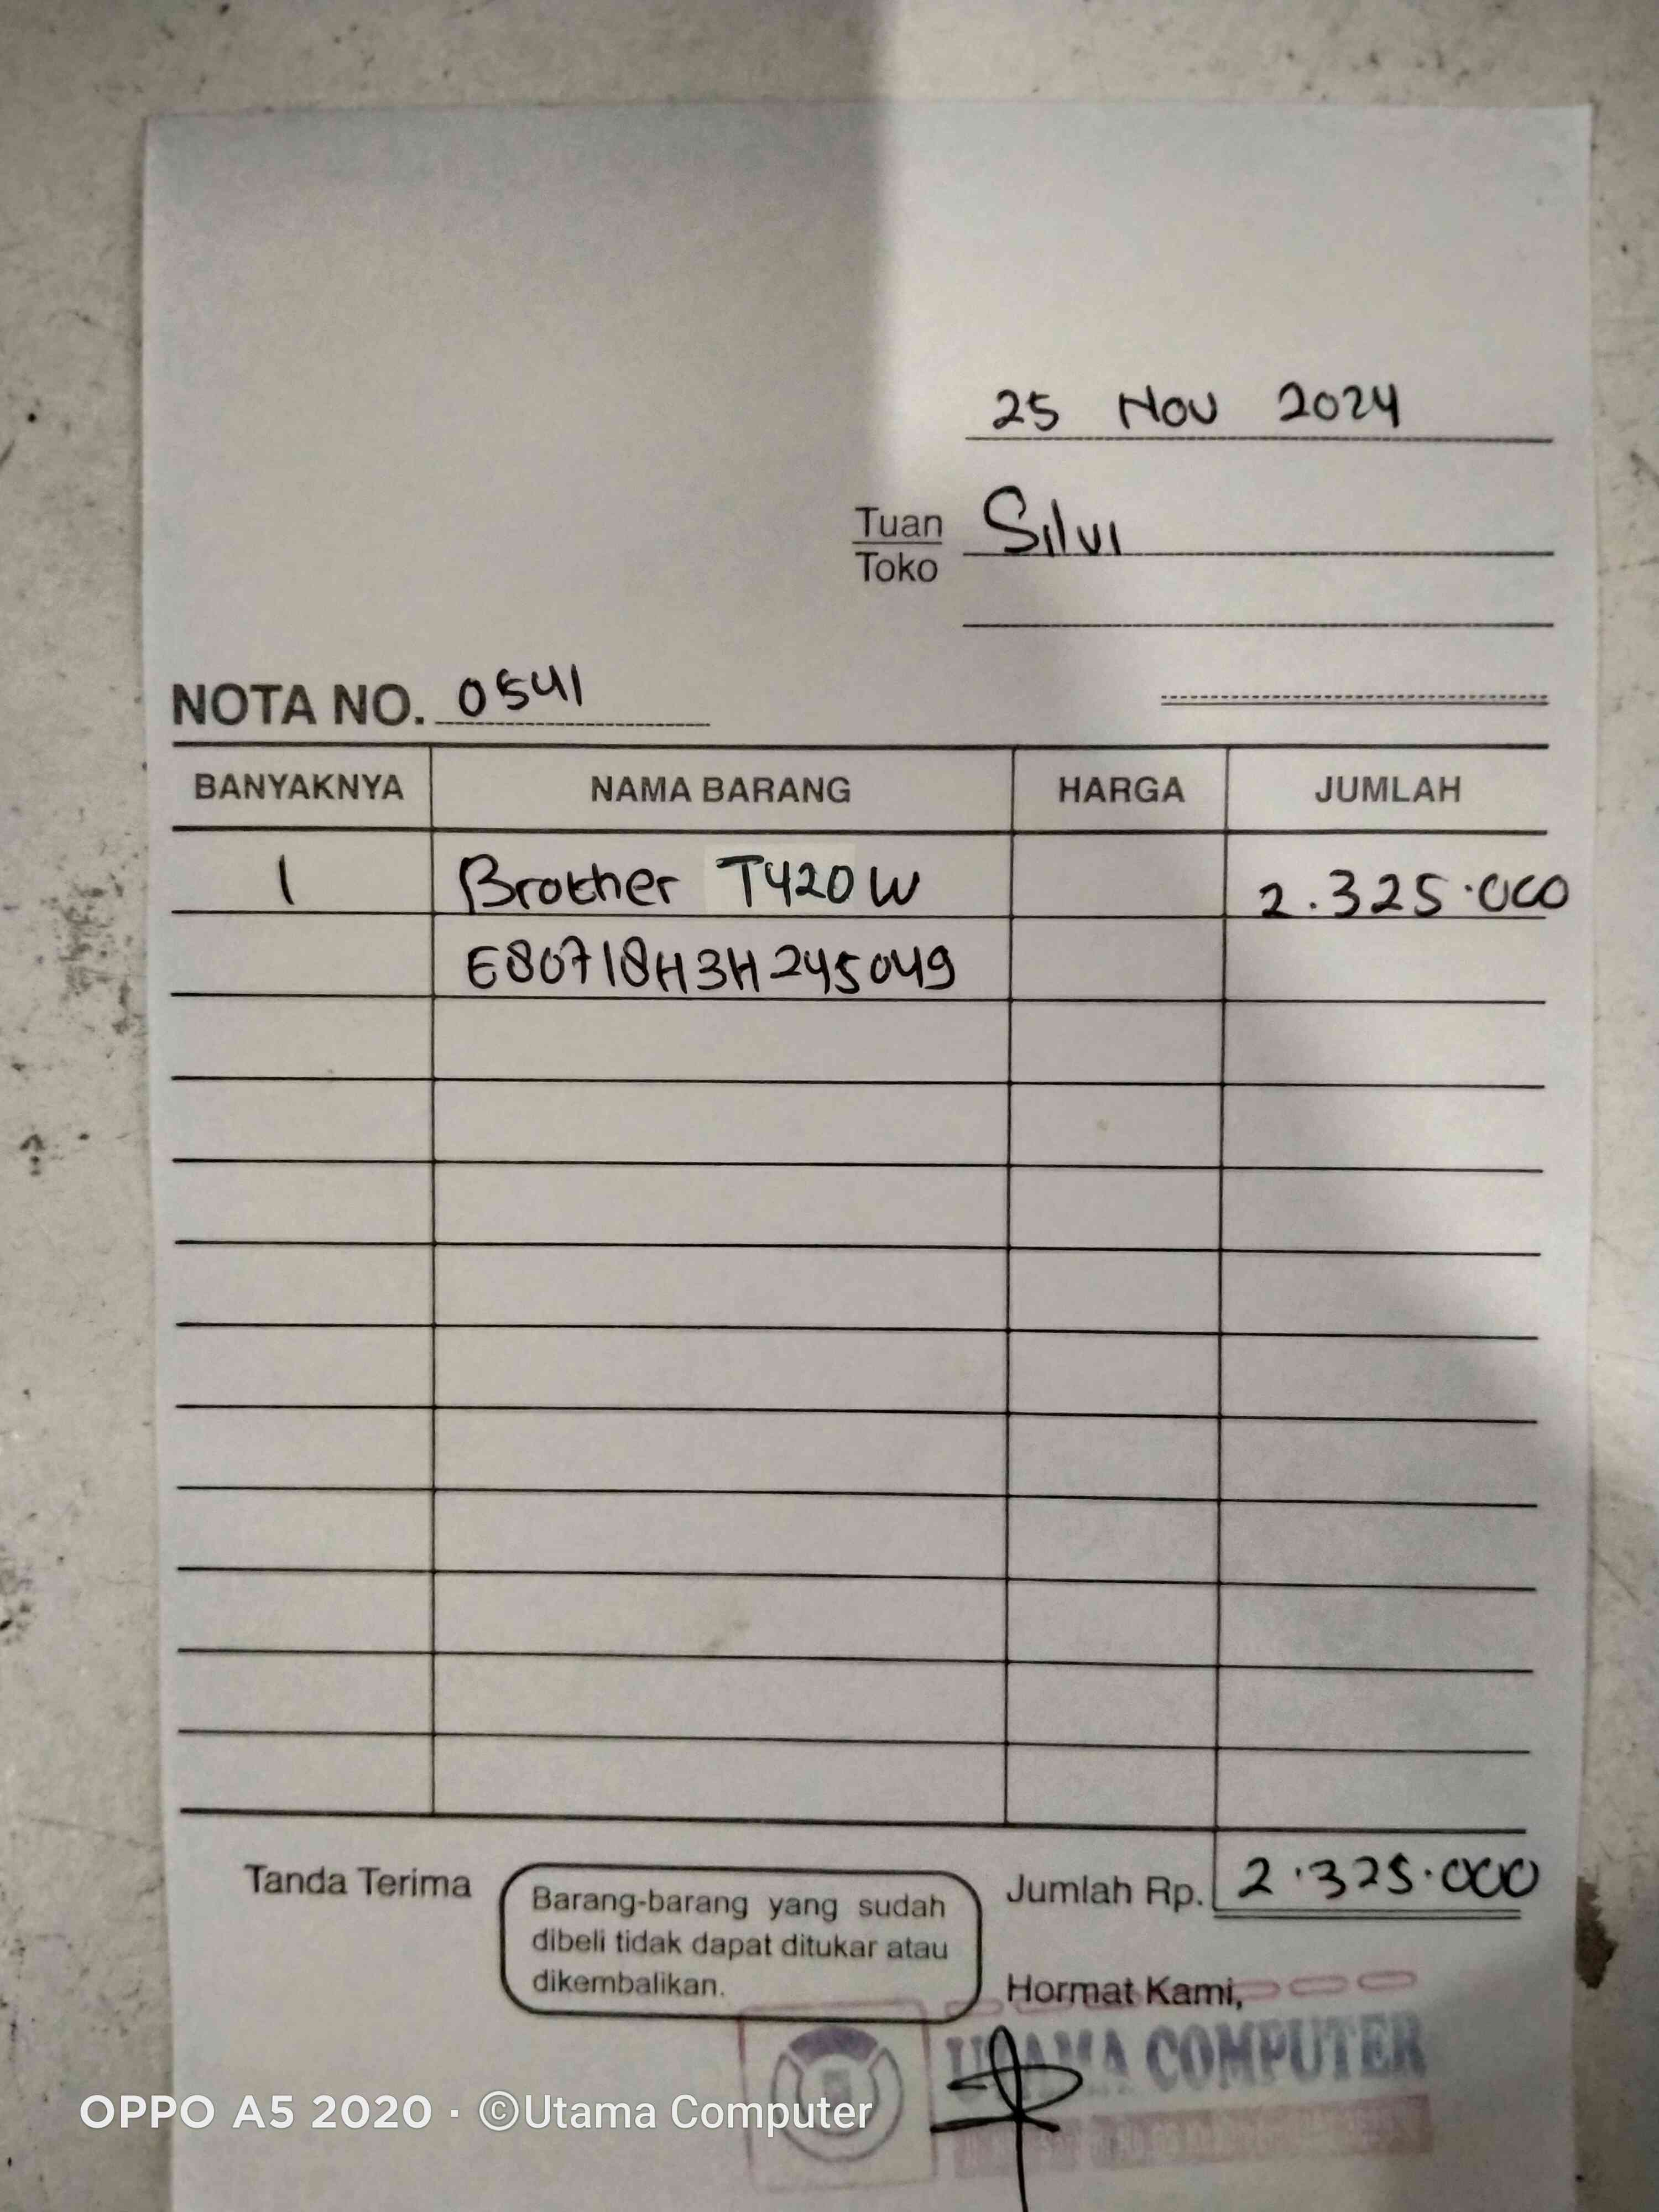 25 Nov 2024
Tuan Silvi
Toko
NOTA NO. 0541
BANYAKNYA NAMA BARANG HARGA JUMLAH
1 Brother T420W 2.325.000
E80718H3H245049
Tanda Terima
Barang-barang yang sudah
dibeli tidak dapat ditukar atau
dikembalikan.
Jumlah Rp. 2.325.000
Hormat Kami,
UTAMA COMPUTER
OPPO A5 2020 · ©Utama Computer